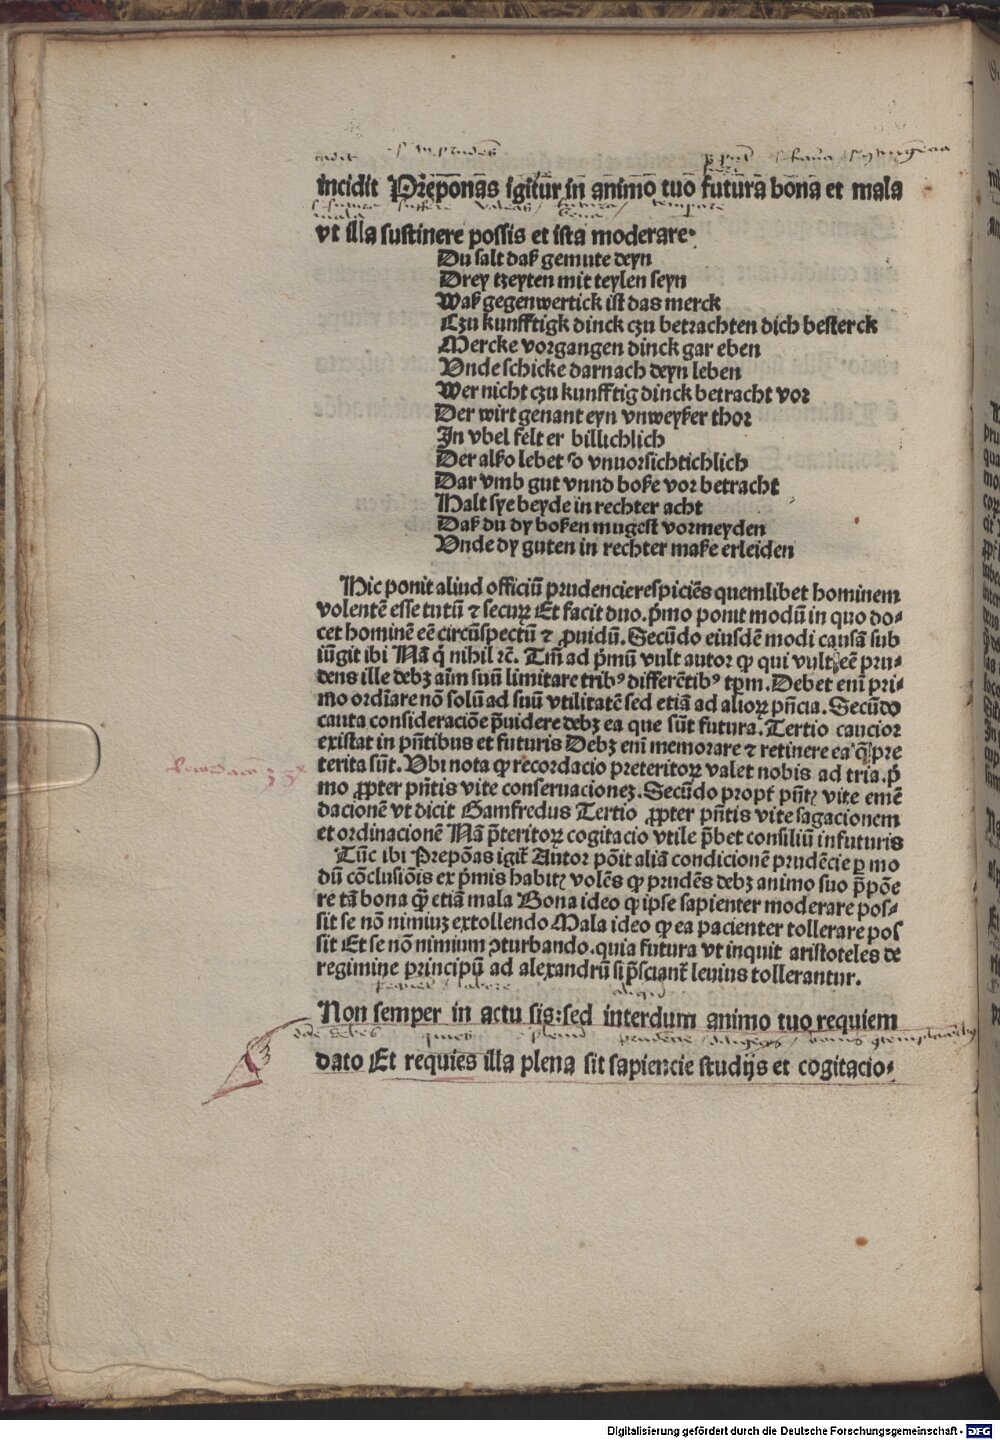 incidit Preponas igitur in animo tuo futura bona et mala
vt illa sustinere possis et ista moderare.
Du salt daß gemute deyn
Drey tzeyten mit teylen seyn
Waß gegenwertick ist das merck
Czu kunfftigk dinck czu betrachten dich besterck
Mercke vorgangen dinck gar eben
Vnde schicke darnach deyn leben
Wer nicht czu kunfftig dinck betracht vor
Der wirt genant eyn vnweyßer thor
In vbel felt er billichlich
Der alßo lebet so vnuorsichtichlich
Dar vmb gut vnnd boße vor betracht
Halt sye beyde in rechter acht
Daß du dy boßen mugest vormeyden
Vnde dy guten in rechter maße erleiden
Hic ponit aliud officiū prudencie respiciēs quemlibet hominem
volentē esse tutū ⁊ securꝝ Et facit duo. p̄mo ponit modū in quo do⸗
cet hominē eē circūspectū ⁊ ꝓuidū. Secūdo eiusdē modi causā sub
iūgit ibi Nā q̄ nihil ⁊c̄. Tm̄ ad p̄mū vult autor ꝙ qui vult eē pru⸗
dens ille debꝫ aīm suū limitare tribꝰ differētibꝰ tp̄m. Debet eni pri⸗
mo ordīare nō solū ad suū vtilitatē sed etiā ad aliorꝝ pn̄cia. Secūdo
cauta consideraciōe p̄uidere debꝫ ea que sūt futura. Tertio caucior
existat in pn̄tibus et futuris Debꝫ eni memorare ⁊ retinere ea q̄ pre
terita sūt. Vbi nota ꝙ recordacio preteritorꝝ valet nobis ad tria. p̄
mo ꝓpter pn̄tis vite conseruacioneꝫ. Secūdo propt̄ pn̄tꝭ vite emē
dacionē vt dicit Gamfredus Tertio ꝓpter pn̄tis vite sagacionem
et ordinacionē Nā p̄teritorꝝ cogitacio vtile p̄bet consiliū in futuris
Tūc ibi Prepōas igit̄ Autor pōit aliā condicionē prudēcie ꝑ mo
dū cōclusiōis ex p̄mis habitꝭ volēs ꝙ prudēs debꝫ animo suo p̄pōe
re tā bona q̄ etiā mala Bona ideo ꝙ ipse sapienter moderare pos⸗
sit se nō nimiuꝫ extollendo Mala ideo ꝙ ea pacienter tollerare pos
sit Et se nō nimium ꝯturbando. quia futura vt inquit aristoteles de
regimine principū ad alexandrū si p̄sciant̄ leuius tollerantur.
Non semper in actu sis: sed interdum animo tuo requiem
dato Et requies illa plena sit sapiencie studijs et cogitacio⸗
Digitalisierung gefördert durch die Deutsche Forschungsgemeinschaft - DFG